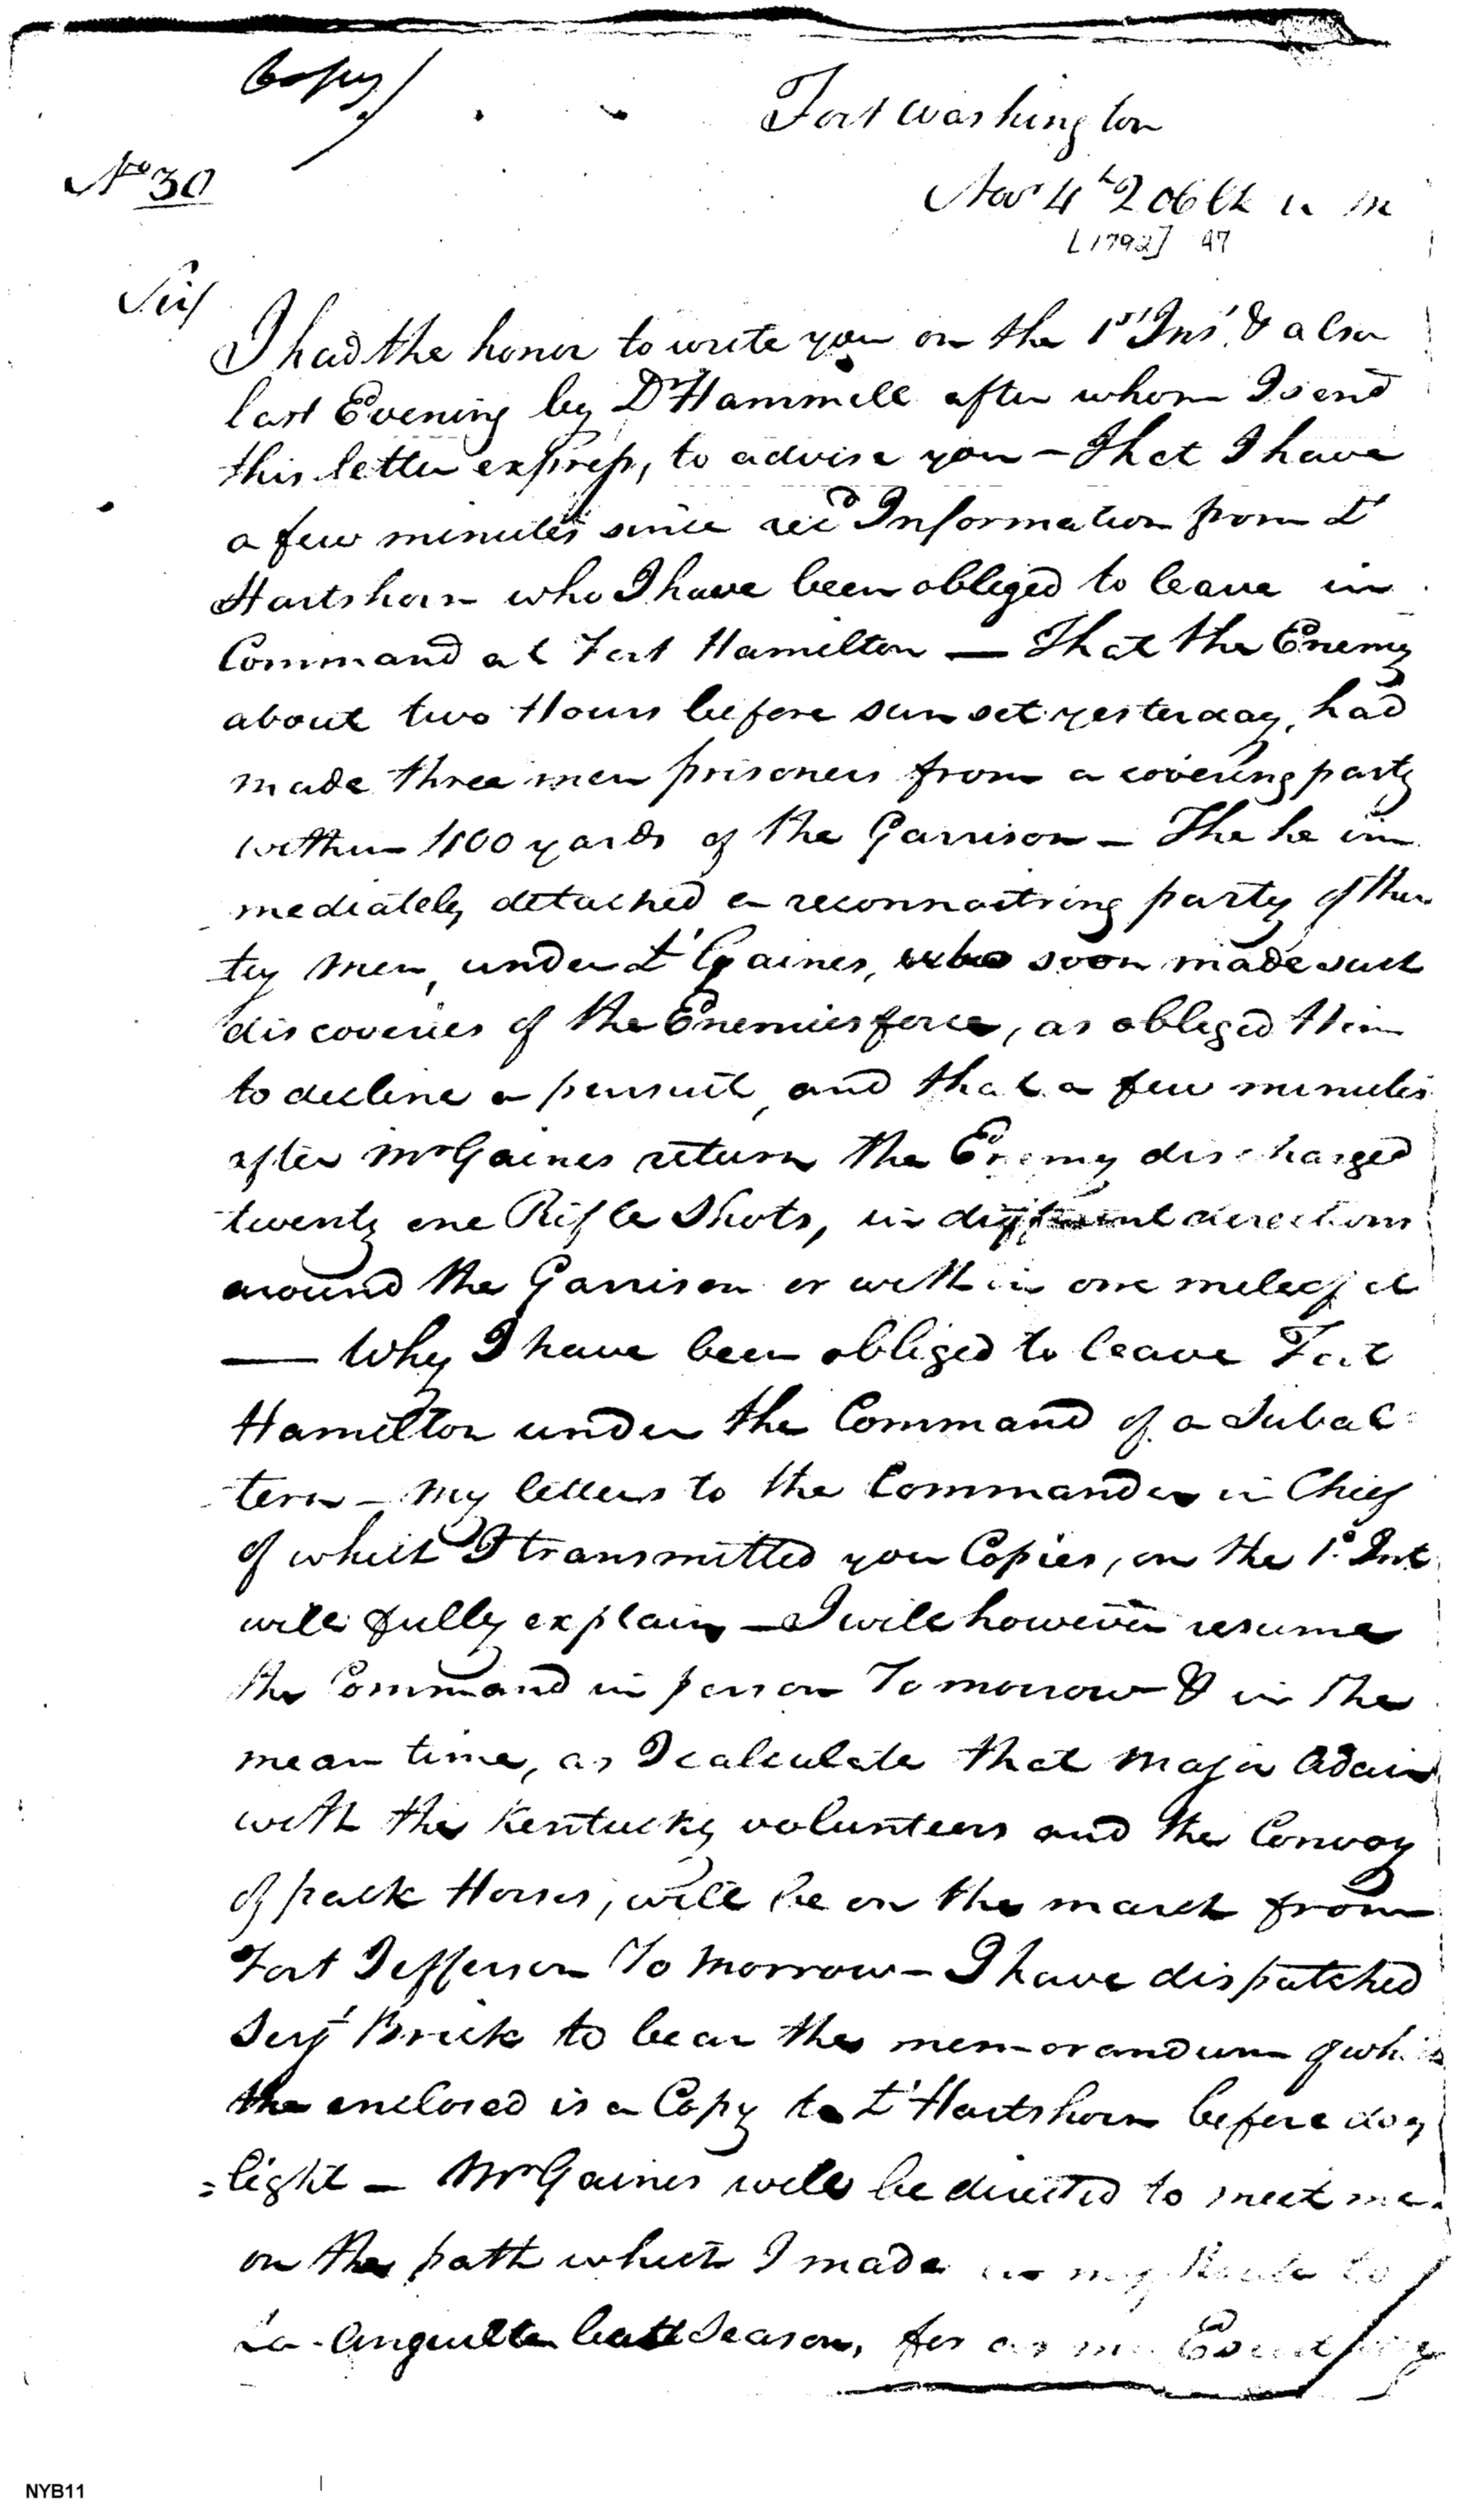 Copy
Fort Washington
No 30
Novr 4th 2 oClk a m
[1792] 47
Sir/
I had the honor to write you on the 1st Inst. & also
last Evening by Dr Hammill after whom I send
this letter express, to advise you – That I have
a few minutes since recd Information from Lt
Hartshorn who I have been obliged to leave in
Command at Fort Hamilton — That the Enemy
about two Hours before sun set yesterday, had
made three men prisoners from a covering party
within 400 yards of the Garrison – The he im
mediately detached a reconnoitring party of thir
ty men, under Lt Gaines, who soon made such
discoveries of the Enemies force, as obliged Him
to decline a pursuit, and that a few minutes
after Mr Gaines return the Enemy discharged
twenty one Rifle Shots, in different directions
around the Garrison or within one mile of it
— Why I have been obliged to leave Fort
Hamilton under the Command of a Subal
tern – my letters to the Commander in Chief
of which I transmitted you Copies, on the 1st Inst
will fully explain – I will however resume
the Command in person To morrow & in the
mean time, as I calculate that Major Adair
with the Kentucky volunteers and the Convoy
of pack Horses, will be on the march from
Fort Jefferson To Morrow – I have dispatched
Serjt Brick to bear the memorandum of which
the enclosed is a Copy to Lt Hartshorn before day
=light – Mr Gaines will be directed to meet me
on the path which I made in my Route to
La-Anguille last Season, for as my
NYB11